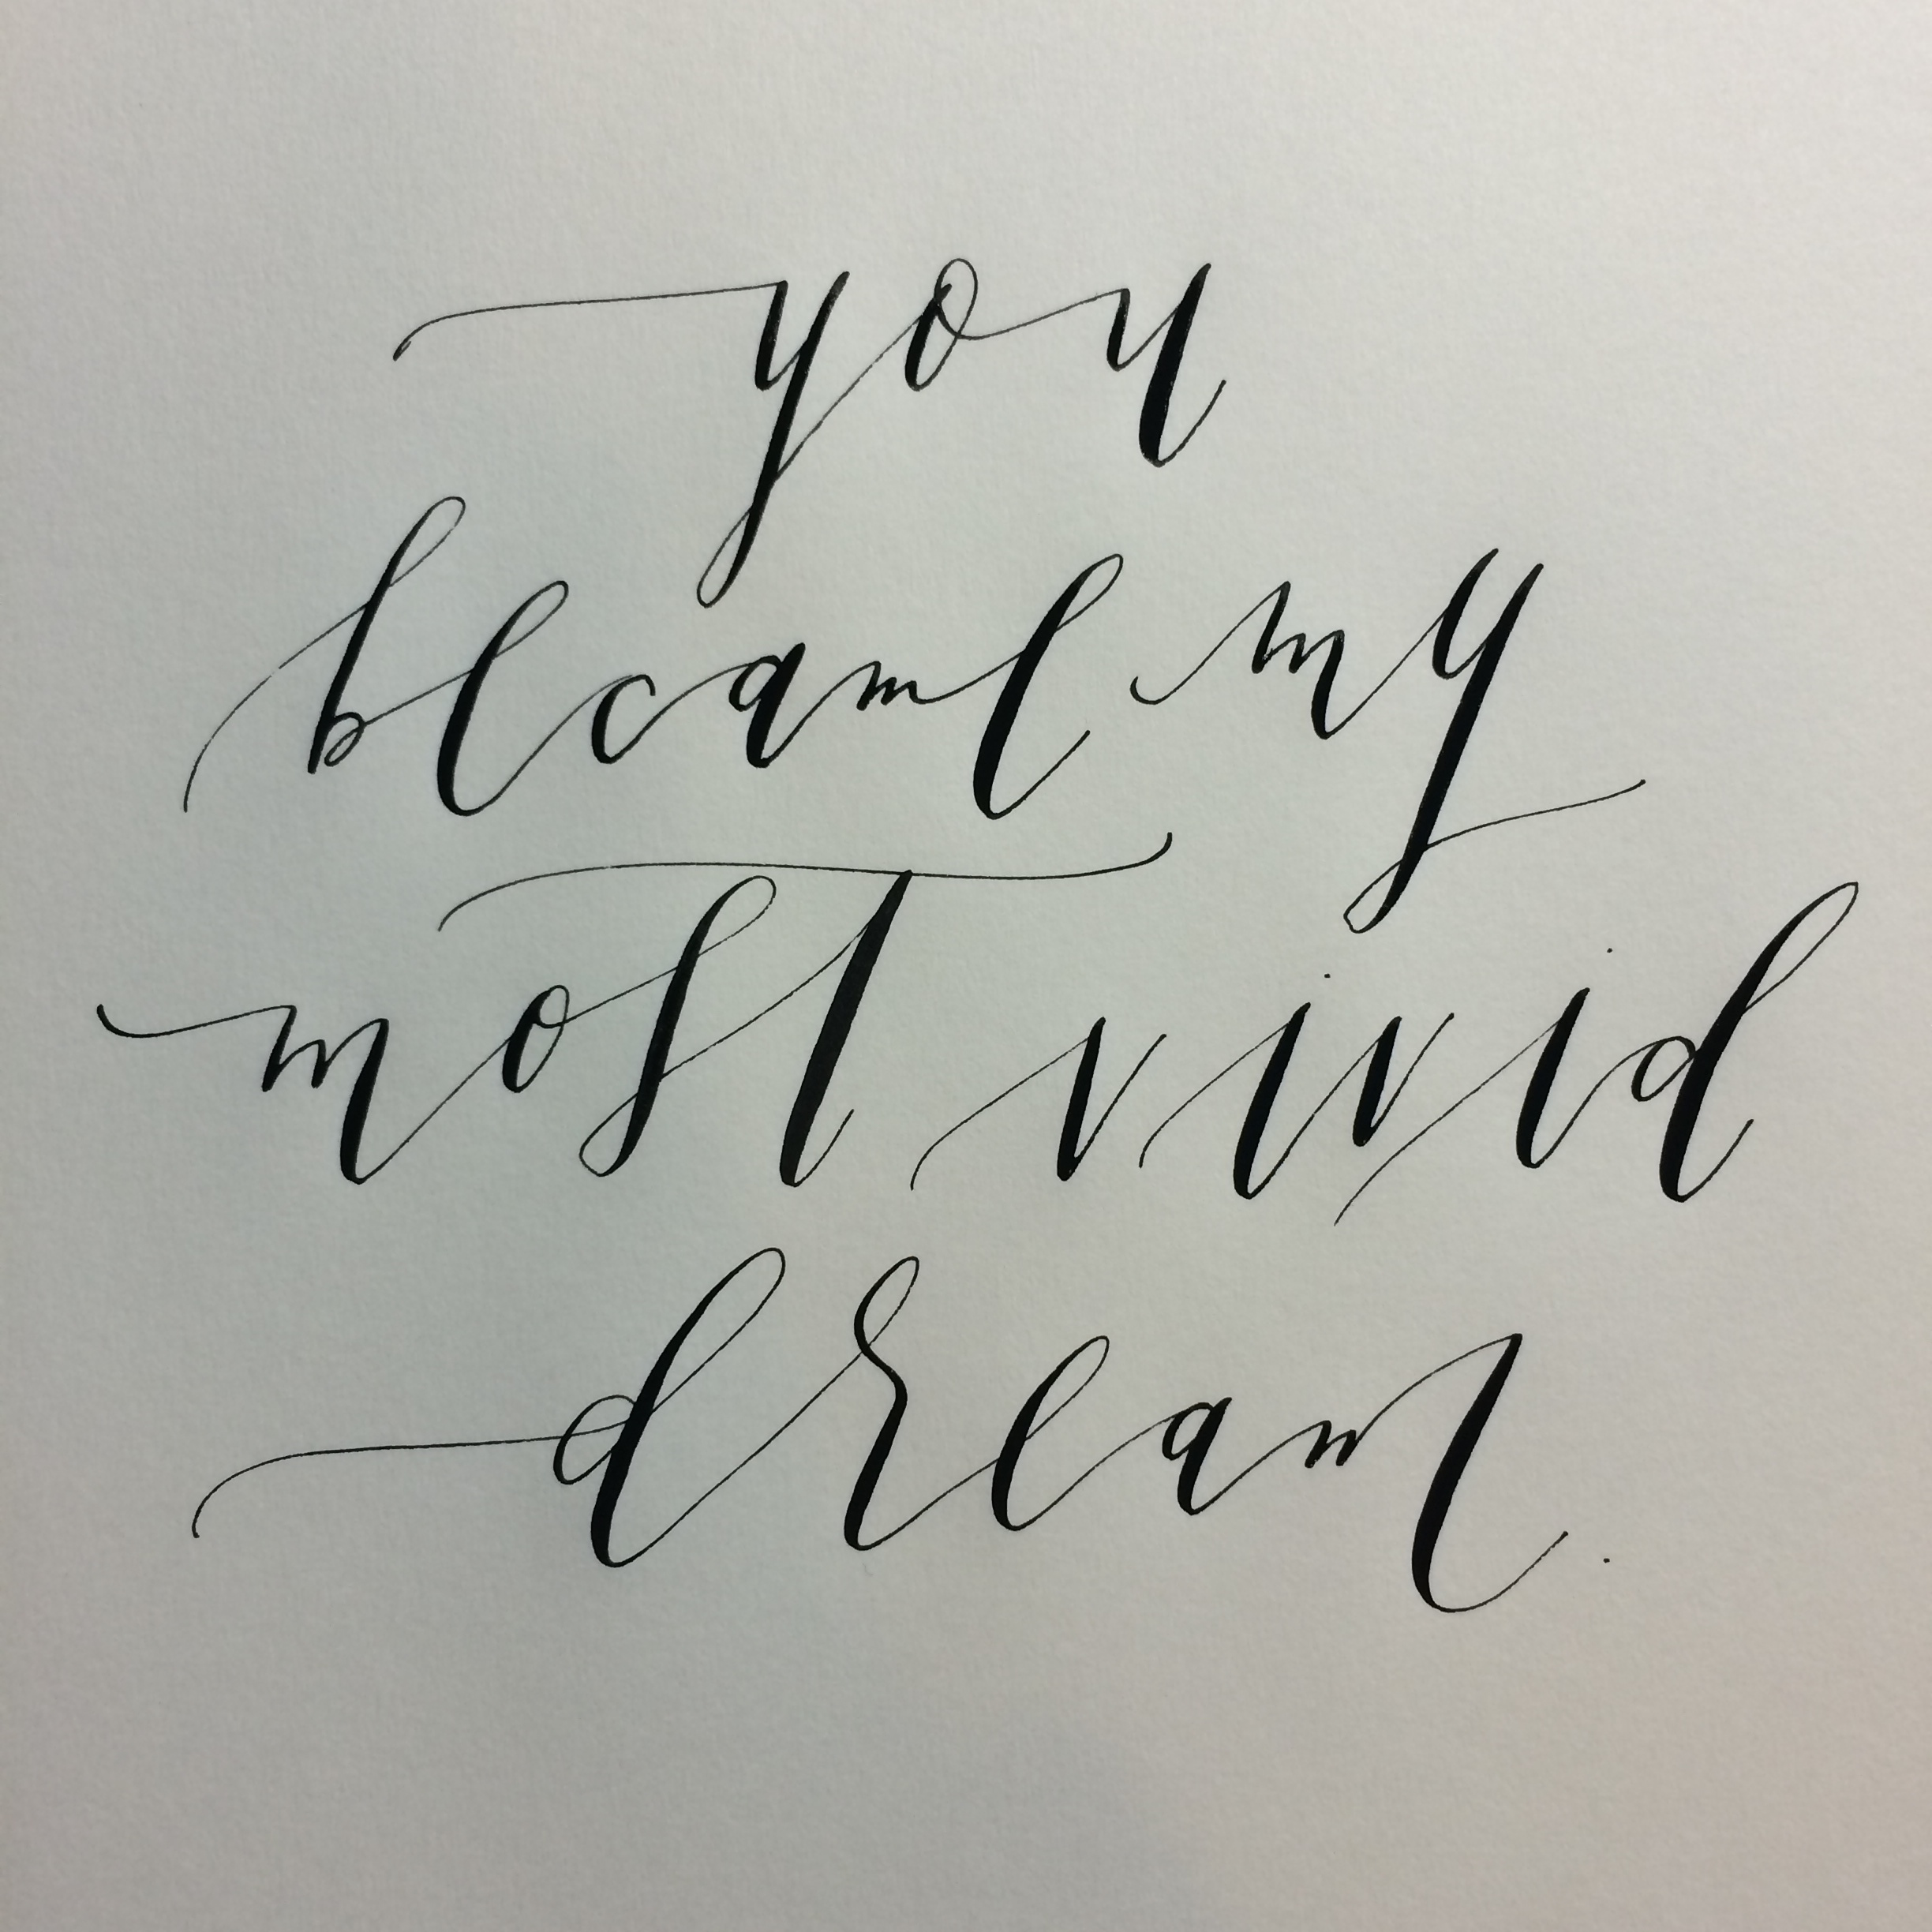 you
became my
most vivid
dream.